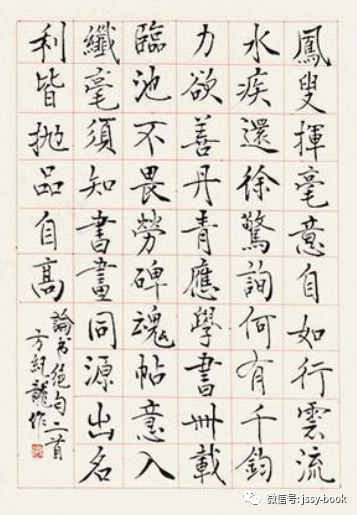 鳳叟揮毫意自如行雲流
水疾還徐驚詢何有千鈞
力欲善丹青應學書卌載
臨池不畏勞碑魂帖意入
纖毫須知書畫同源出名
利皆拋品自高
論书絕句二首
方紀龍作
微信号: jssy-book